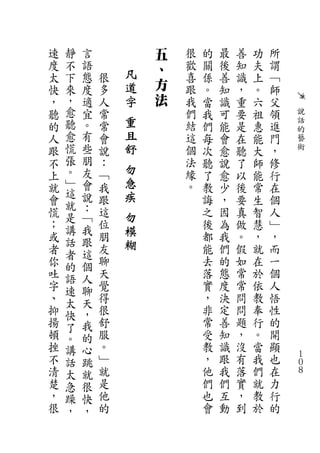 說話的藝術
所謂「師父領進門，修行在個人」，而一個人悟性的開顯也在力行的
功夫上。六祖惠能大師能常生智慧，就在於依教奉行。當我們就教於
善知識，重要是在聽了以後要真做。假如常常問問題，沒有落實，到
最後善知識可能會愈說愈少，因為我們的態度決定善知識跟我們互動
的關係。當我們每次聽了教誨之後，都能去落實，非常受教，他們也會
很歡喜跟我們結這個法緣。
五、方法
凡道字　重且舒　勿急疾　勿模糊
很多人常常會說：「我跟這位朋友聊天覺得很舒服。」就是他的
言語態度適宜。有些朋友會說：「我跟這個人聊天，我的心跳就很快，
靜不下來，愈聽愈慌張。」這就是講話者的語速太快了。講話太急躁，
速度太快，聽的人跟不上就會慌；或者你吐字、抑揚頓挫不清楚，很
108